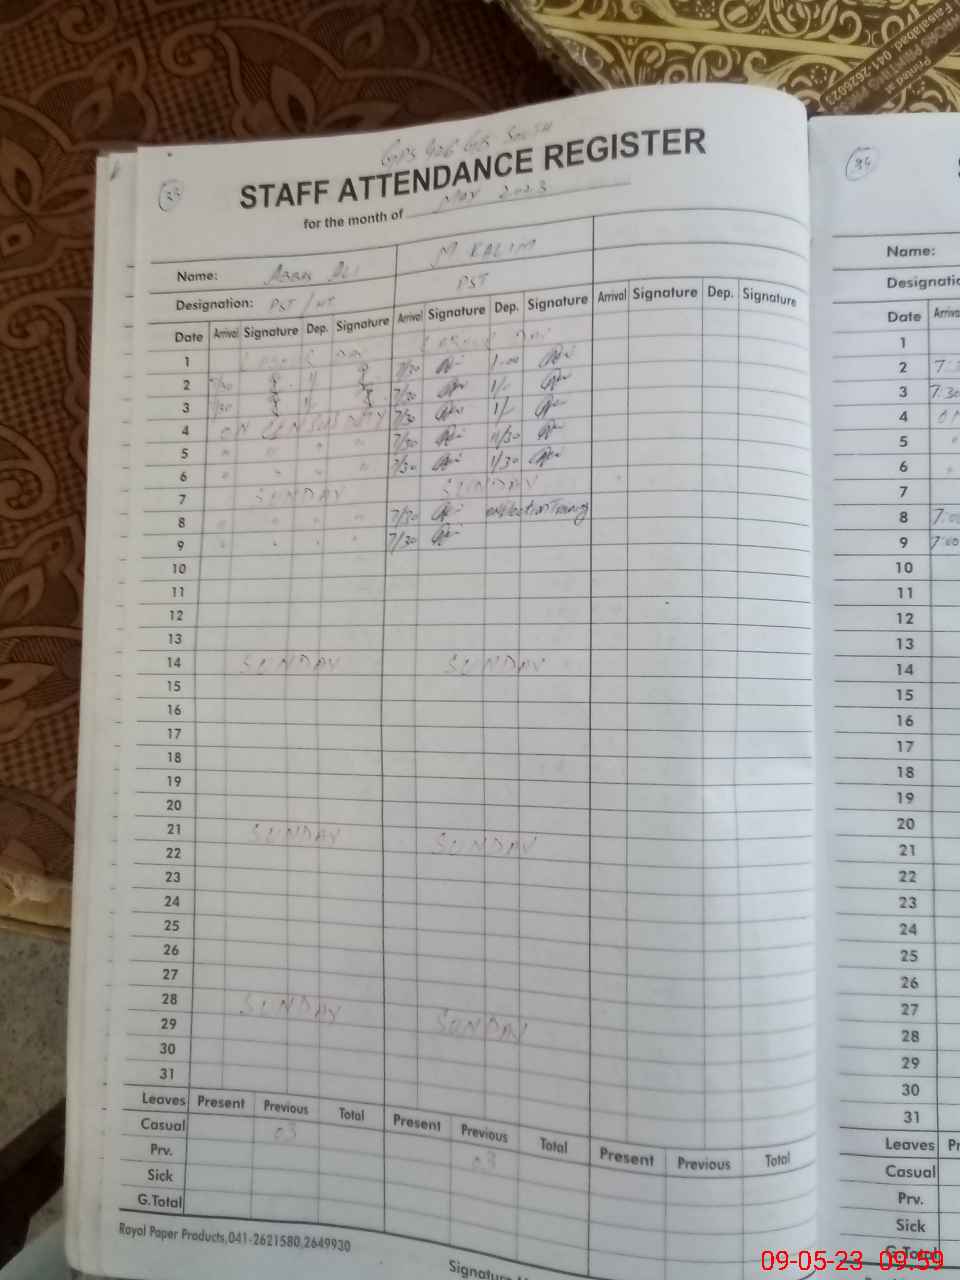 Printed at
PRINTING PRESS
Faisalabad 041-2626023
GPS 426 GB SOUTH
33
STAFF ATTENDANCE REGISTER
for the month of MAY 2023
Name: ABBAS ALI M KALIM
Designation: PST / HT PST
Date Arrival Signature Dep. Signature Arrival Signature Dep. Signature Arrival Signature Dep. Signature
1 LABOUR DAY LABOUR DAY
2 7/30 1/ 7/30 1-00
3 7/30 1/- 7/30 1/-
4 ON CENSUS DUTY 7/30 1/-
5 " " " " 7/30 11/30
6 " " " " 7/30 1/30
7 SUNDAY SUNDAY
8 " " " " 7/30 Training
9 " " " " 7/30
10
11
12
13
14 SUNDAY SUNDAY
15
16
17
18
19
20
21 SUNDAY SUNDAY
22
23
24
25
26
27
28 SUNDAY SUNDAY
29
30
31
Leaves Present Previous Total Present Previous Total Present Previous Total
Casual 03 03
Prv.
Sick
G.Total
Royal Paper Products,041-2621580,2649930
Signature
34
Name:
Date
1
2
3 7.30
4
5
6
7
8 7.00
9 7.00
10
11
12
13
14
15
16
17
18
19
20
21
22
23
24
25
26
27
28
29
30
31
Leaves
Casual
Prv.
Sick
G.Total
09-05-23 09:59